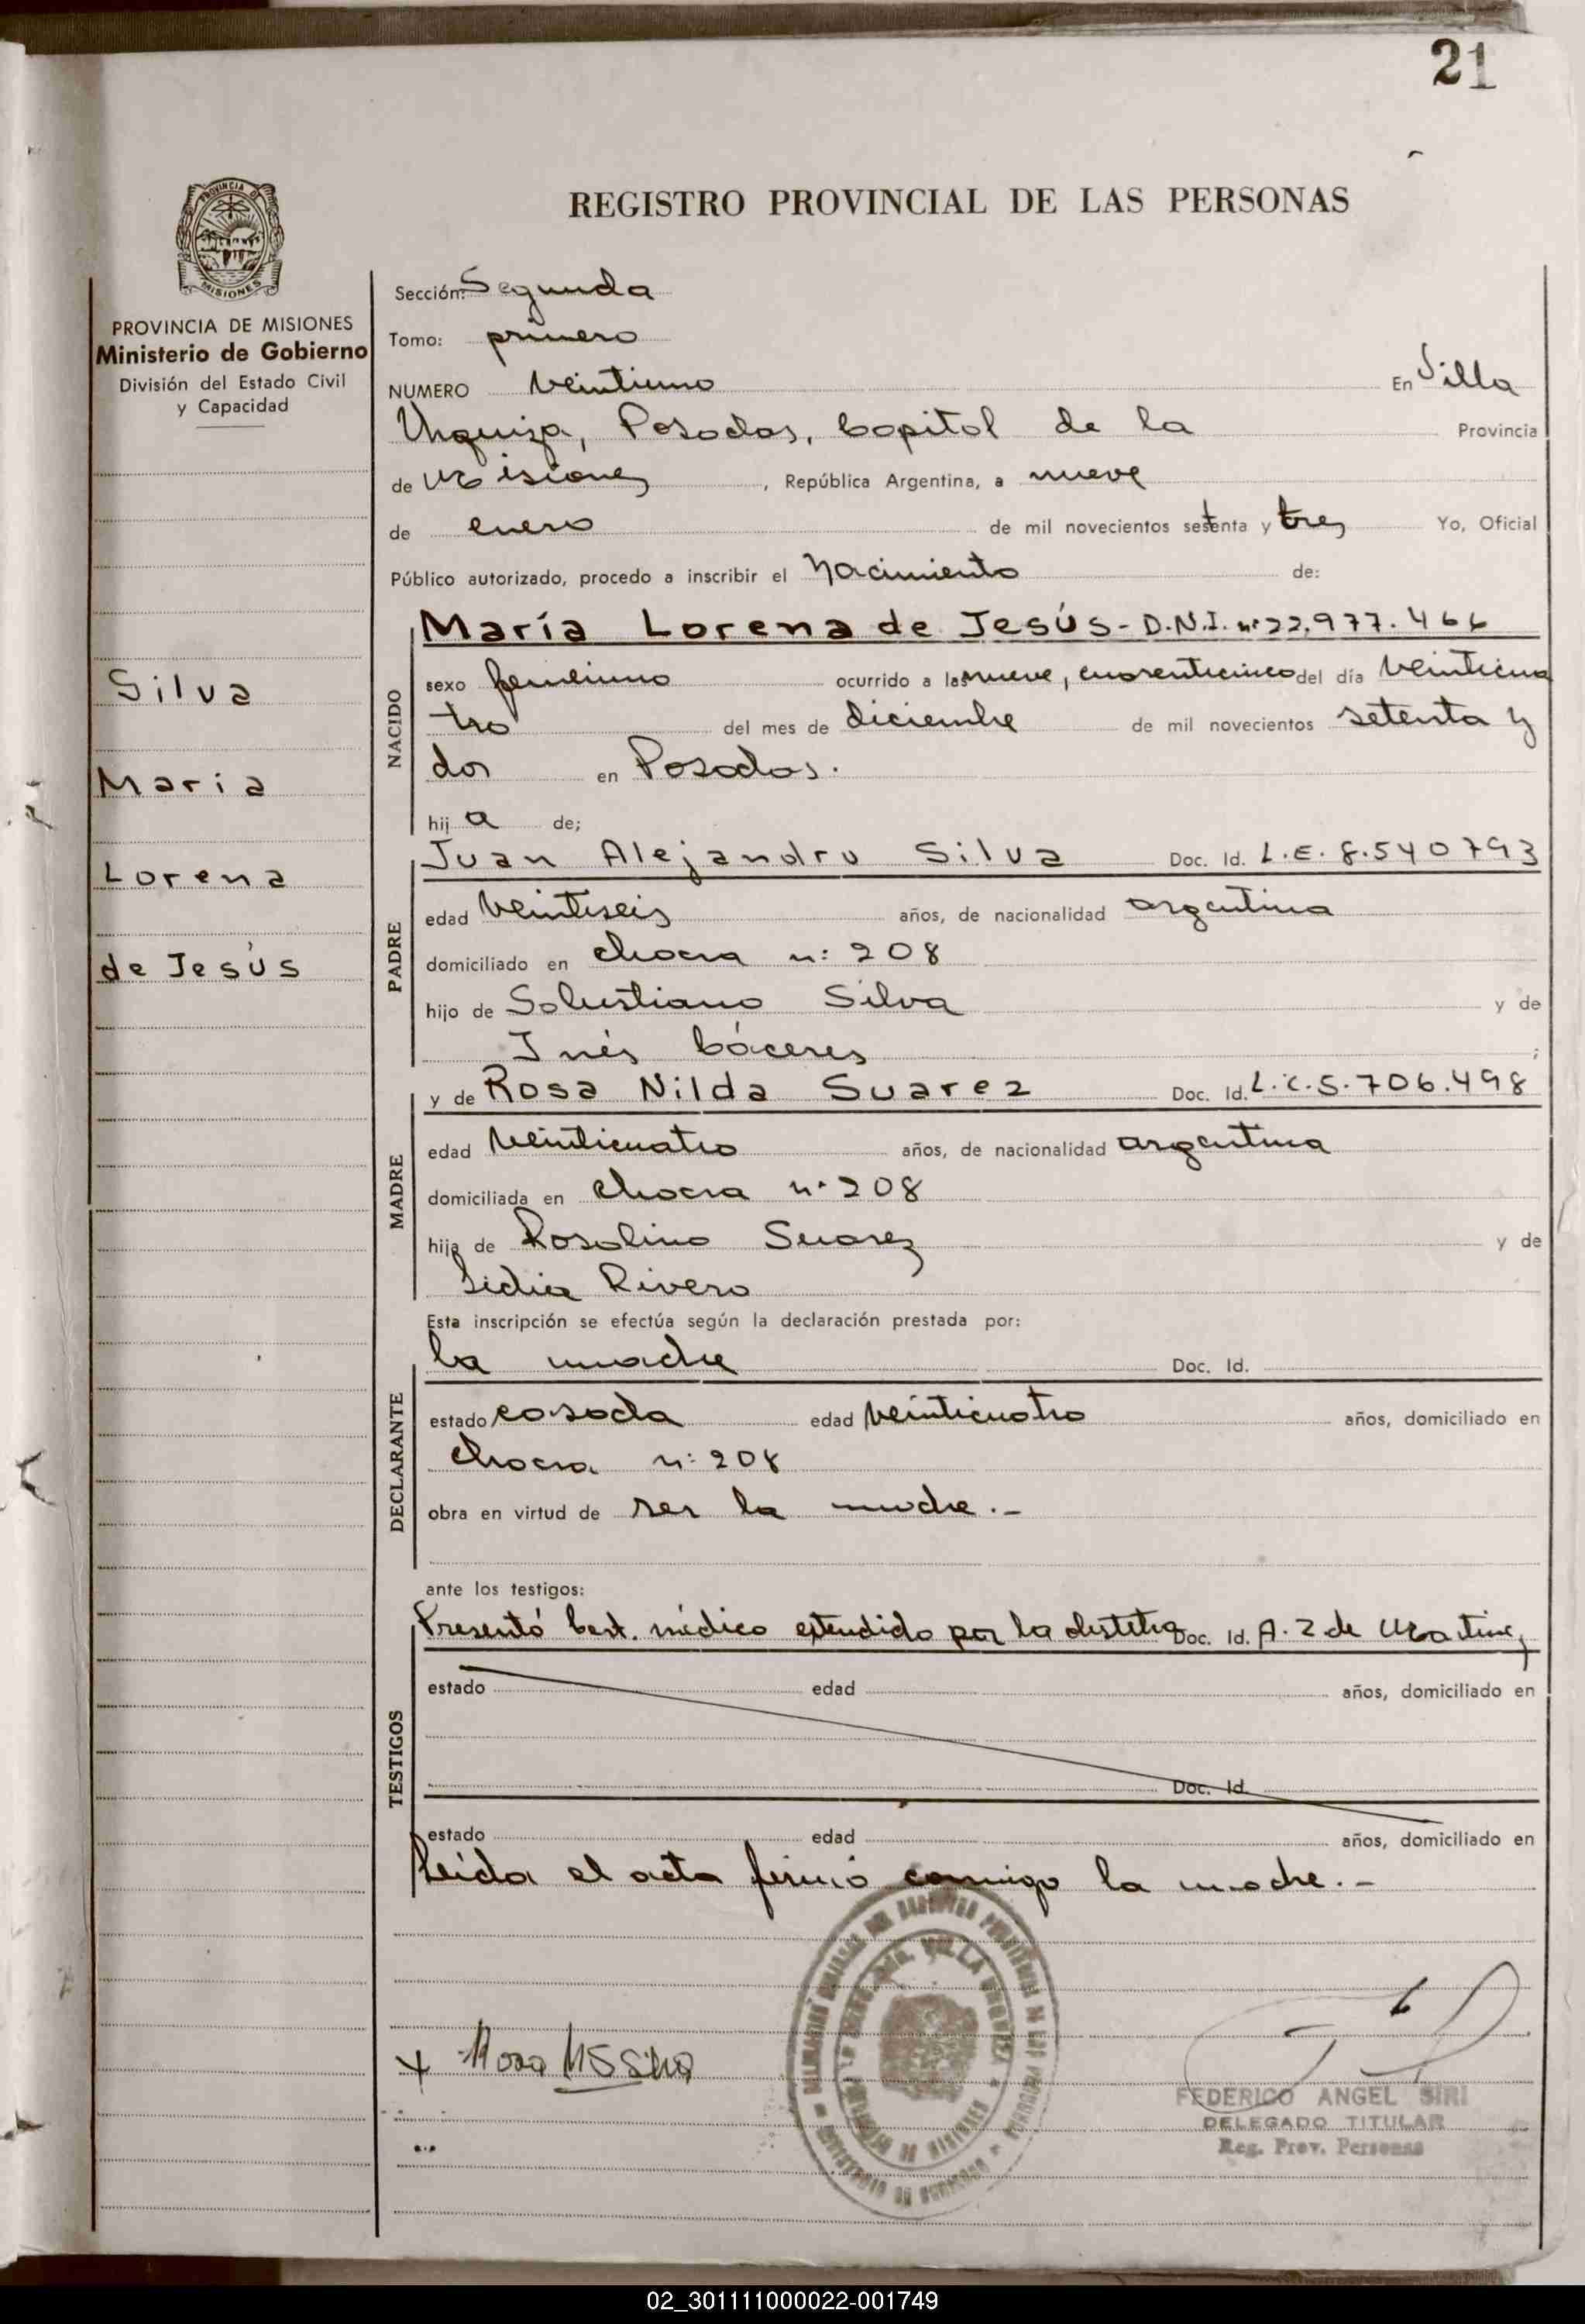 21
REGISTRO PROVINCIAL DE LAS PERSONAS
PROVINCIA DE MISIONES
MISIONES
PROVINCIA DE MISIONES
Ministerio de Gobierno
División del Estado Civil
y Capacidad
Silva
María
Lorena
de Jesús
Sección: Segunda
Tomo: primero
NUMERO veintiuno En Villa
Urquiza, Posadas, Capital de la Provincia
de Misiones, República Argentina, a nueve
de enero de mil novecientos setenta y tres Yo, Oficial
Público autorizado, procedo a inscribir el Nacimiento de:
NACIDO
María Lorena de Jesús - D.N.I. nº 22.977.466
sexo femenino ocurrido a las nueve, cuarenticinco del día veinticua
tro del mes de diciembre de mil novecientos setenta y
dos en Posadas.
hij a de;
PADRE
Juan Alejandro Silva Doc. Id. L.E. 8.540793
edad veintiseis años, de nacionalidad argentina
domiciliado en chacra n: 208
hijo de Salustiano Silva y de
Inés Cáceres ;
MADRE
y de Rosa Nilda Suarez Doc. Id. L.C.5.706.498
edad veinticuatro años, de nacionalidad argentina
domiciliada en chacra nº 208
hija de Rosalino Suarez y de
Lidia Rivero
Esta inscripción se efectúa según la declaración prestada por:
DECLARANTE
la madre Doc. Id.
estado casada edad veinticuatro años, domiciliado en
chacra n: 208
obra en virtud de ser la madre.-
ante los testigos:
TESTIGOS
Presentó Cert. médico extendido por la obstetra Doc. Id. A. Z de Martinez
estado edad años, domiciliado en
Doc. Id.
estado edad años, domiciliado en
Leída el acta firmó conmigo la madre.-
VILLA URQUIZA
FEDERICO ANGEL SIRI
DELEGADO TITULAR
Reg. Prov. Personas
02_301111000022-001749